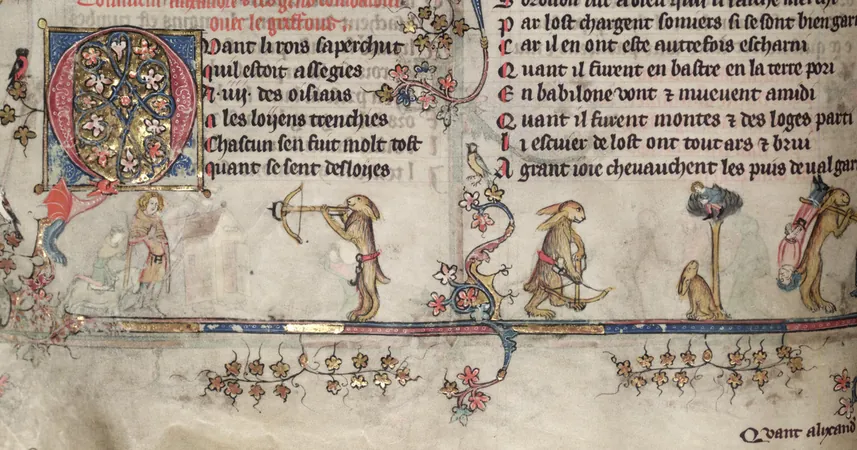 ouer le griffons
Quant li rois saperchut
quil estoit assegies
A . iiij . des oisiaus
a les loijens trenchies
Chascun sen fuit molt tost
quant se sent desloijes
Par lost chargent somiers si se sont bien gar
Car il en ont este autrefois escharni
Quant il furent en bastre en la terre pori
En babilone vont ⁊ mueuent amidi
Quant il furent montes ⁊ des loges parti
li escuier de lost ont tout ars ⁊ brui
A grant ioie cheuauchent les puis de ual gar
Quant alixand